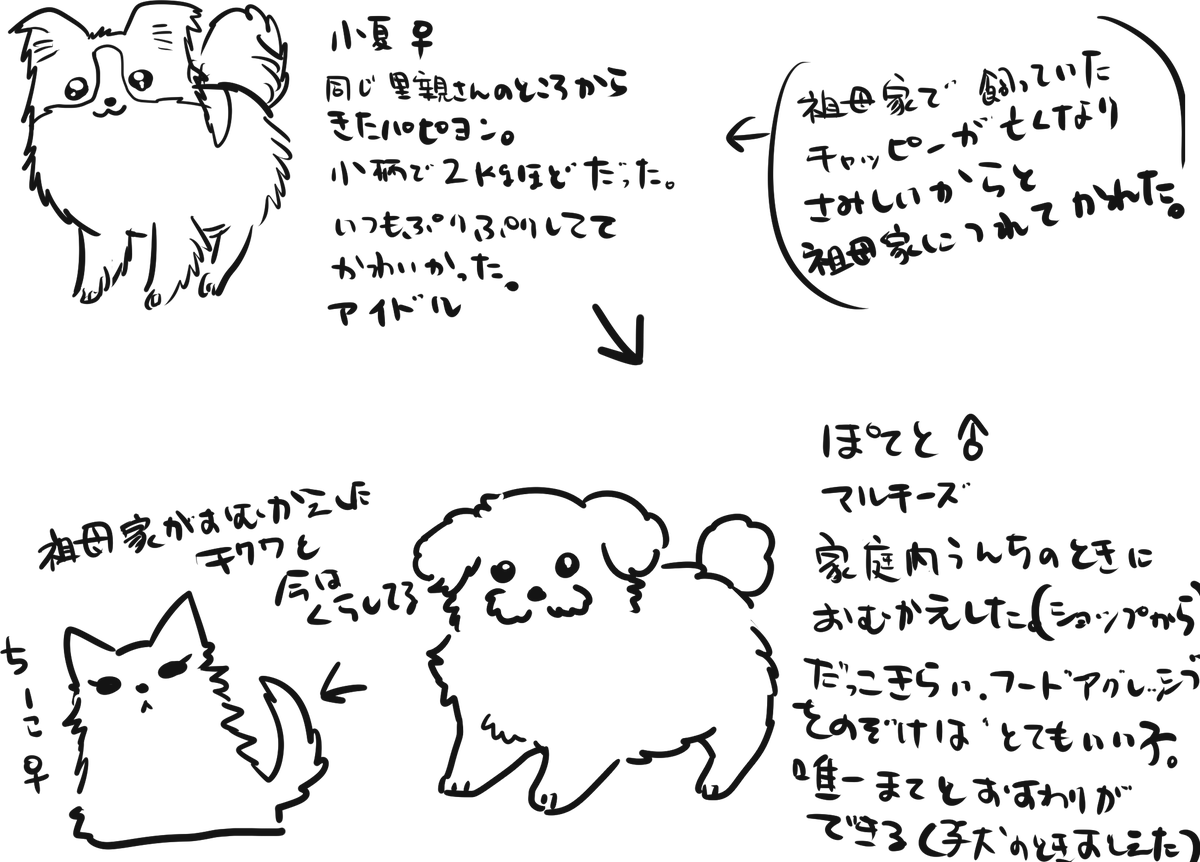 小夏♀
同じ里親さんのところから
きたパピヨン。
小柄で2kgほどだった。
いつもぷりぷりしてて
かわいかった。
アイドル
祖母家で飼っていた
チャッピーが亡くなり
さみしいからと
祖母家につれてかれた。
ぽてと♂
マルチーズ
家庭内うんちのときに
おむかえした(ショップから)
だっこきらい、フードアグレッシブ
をのぞけばとてもいい子。
唯一まてとおすわりが
できる(子犬のときおしえた)
祖母家がおむかえした
チクワと
今は
くらしてる
ちーこ♀